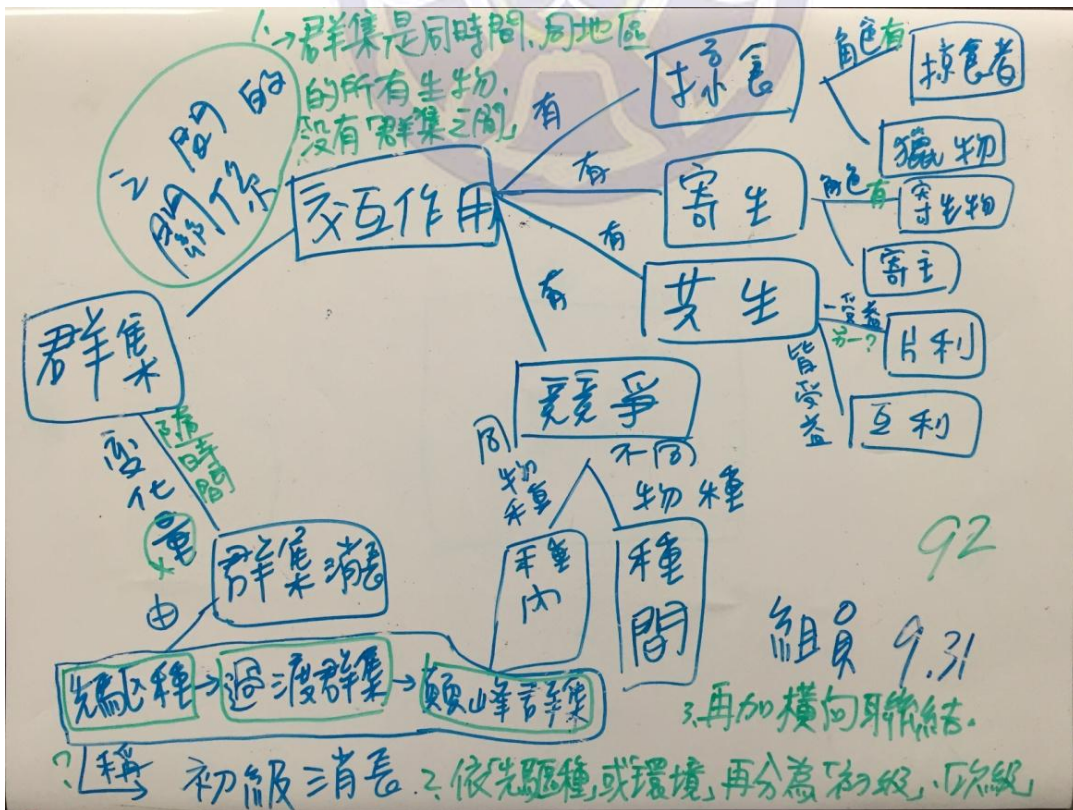 1.→群集是同時間、同地區
的所有生物.
沒有「群集之間」
之間的
關係
交互作用
有
掠食
角色有
掠食者
獵物
有
寄生
角色有
寄生物
寄主
有
共生
一受益
另一?
片利
皆受益
互利
有
競爭
同物種
不同
物種
種內
種間
群集
變化量
隨時間
群集消長
由
先驅種→過渡群集→顛峰群集
?
稱
初級消長
2.依「先驅種」或環境,再分為「初級」、「次級」
92
組員 9.31
3.再加橫向聯結.